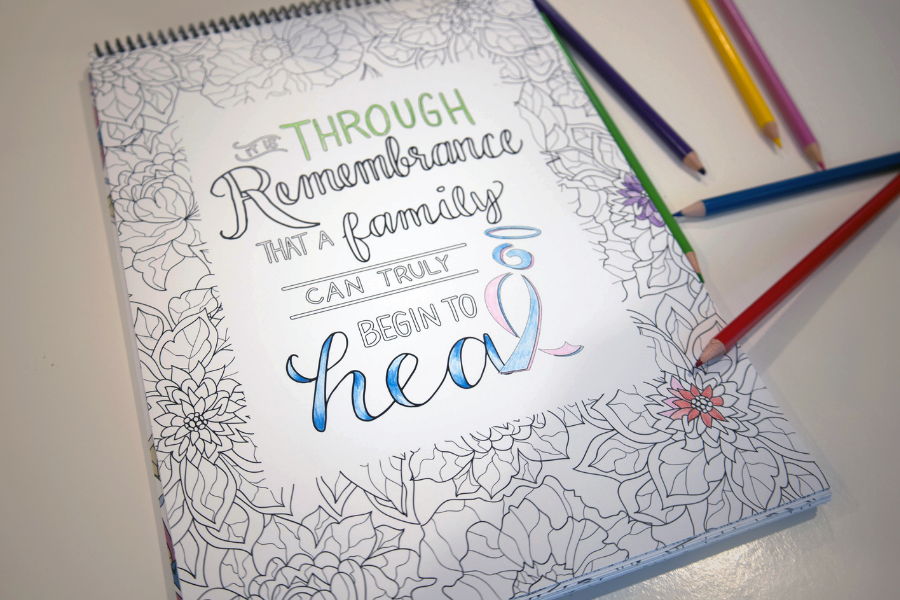 IT IS THROUGH
Remembrance
THAT A family
CAN TRULY
BEGIN TO
heal